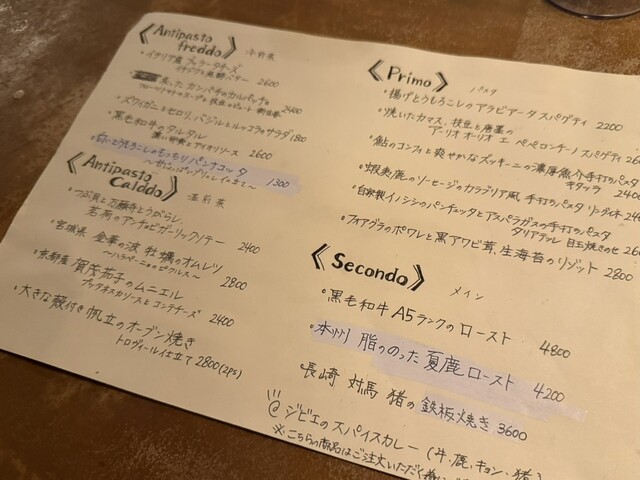 Antipasto freddo 冷前菜
・イタリア産 ブッラータチーズ
イチジクと 2600
カンパチのカルパッチョ
2400
・ズワイガニとセロリ、バジルとルッコラのサラダ 1800
・黒毛和牛のタルタル
2600
・白いとうもろこしのもっちりパンナコッタ
1300
Antipasto Caldo 温前菜
・つぶ貝と万願寺とうがらし、
若芽のアンチョビガーリックソテー 2400
・宮城県 金華の波 牡蠣のオムレツ
〜ハラペーニョのピクルス〜 2800
・京都産 賀茂茄子のムニエル
プッタネスカソースとコンテチーズ 2400
・大きな殻付き帆立のオーブン焼き
トロヴィーレ仕立て 2800(2ps)
Primo パスタ
・揚げとうもろこしのアラビアータ スパゲティ 2200
・焼いたカマス、枝豆と唐墨の
アーリオ オーリオ エ ペペロンチーノ スパゲティ
・鮎のコンフィと爽やかなズッキーニの濃厚魚介 手打のパスタ
キタッラ 2400
・蝦夷鹿のソーセージのカラブリア風 手打のパスタ
・自家製イノシシのパンチェッタとアスパラガスの手打のパスタ
タリアテッレ 目玉焼きのせ
・フォアグラのポワレと黒アワビ茸、生海苔のリゾット 2800
Secondo メイン
・黒毛和牛 A5ランクの ロースト 4800
・本州 脂ののった 夏鹿ロースト 4200
・長崎 対馬 猪の 鉄板焼き 3600
@ ジビエの スパイスカレー (牛・鹿、キョン、猪)
※こちらの商品はご注文いただく